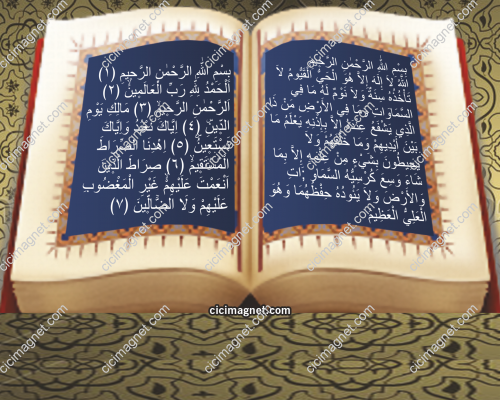 بِسْمِ اللَّهِ الرَّحْمَٰنِ الرَّحِيمِ
اللَّهُ لَا إِلَهَ إِلَّا هُوَ الْحَيُّ الْقَيُّومُ لَا
تَأْخُذُهُ سِنَةٌ وَلَا نَوْمٌ لَهُ مَا فِي
السَّمَاوَاتِ وَمَا فِي الْأَرْضِ مَنْ ذَا
الَّذِي يَشْفَعُ عِنْدَهُ إِلَّا بِإِذْنِهِ يَعْلَمُ مَا
بَيْنَ أَيْدِيهِمْ وَمَا خَلْفَهُمْ وَلَا
يُحِيطُونَ بِشَيْءٍ مِنْ عِلْمِهِ إِلَّا بِمَا
شَاءَ وَسِعَ كُرْسِيُّهُ السَّمَاوَاتِ
وَالْأَرْضَ وَلَا يَئُودُهُ حِفْظُهُمَا وَهُوَ
الْعَلِيُّ الْعَظِيمُ
بِسْمِ اللَّهِ الرَّحْمَٰنِ الرَّحِيمِ (١)
الْحَمْدُ لِلَّهِ رَبِّ الْعَالَمِينَ (٢)
الرَّحْمَٰنِ الرَّحِيمِ (٣) مَالِكِ يَوْمِ
الدِّينِ (٤) إِيَّاكَ نَعْبُدُ وَإِيَّاكَ
نَسْتَعِينُ (٥) اهْدِنَا الصِّرَاطَ
الْمُسْتَقِيمَ (٦) صِرَاطَ الَّذِينَ
أَنْعَمْتَ عَلَيْهِمْ غَيْرِ الْمَغْضُوبِ
عَلَيْهِمْ وَلَا الضَّالِّينَ (٧)
cicimagnet.com